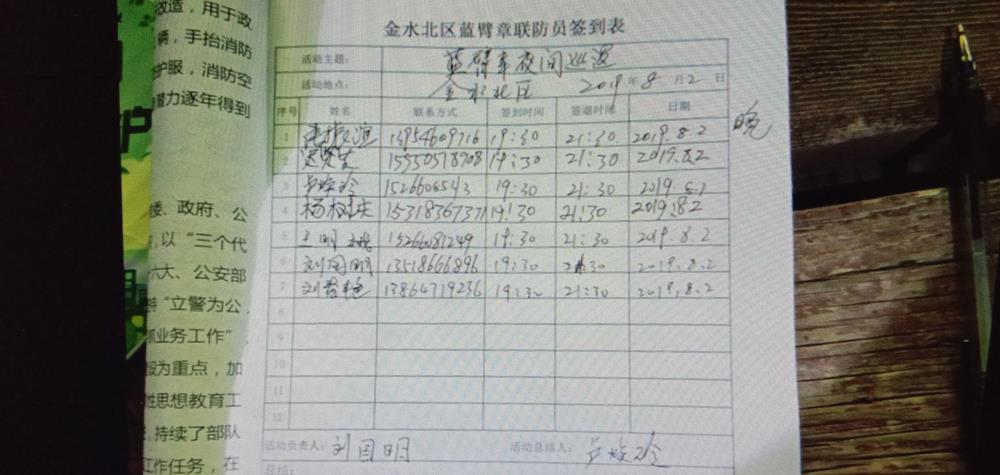 改造，用于政
辆，手抬消防
护服，消防空
潜力逐年得到
楼、政府、公
，以“三个代
六大、公安部
持“立警为公，
抓业务工作”
设为重点，加
性思想教育工
，持续了部队
工作任务，在
金水北区蓝臂章联防员签到表
活动主题： 蓝臂章夜间巡逻
活动地点： 金水北区 2019年8月2日
序号 姓名 联系方式 签到时间 签退时间 日期
1 13954609716 19:30 21:30 2019.8.2 晚
2 15550578908 19:30 21:30 2019.8.2
3 19:30 21:30 2019.8.2
4 杨 15318367371 19:30 21:30 2019.8.2
5 王明 15266081249 19:30 21:30 2019.8.2
6 刘国明 13518666896 19:30 21:30 2019.8.2
7 刘君艳 13864719236 19:30 21:30 2019.8.2
8
9
10
11
12
活动负责人：刘国明 活动总结人：
总结：